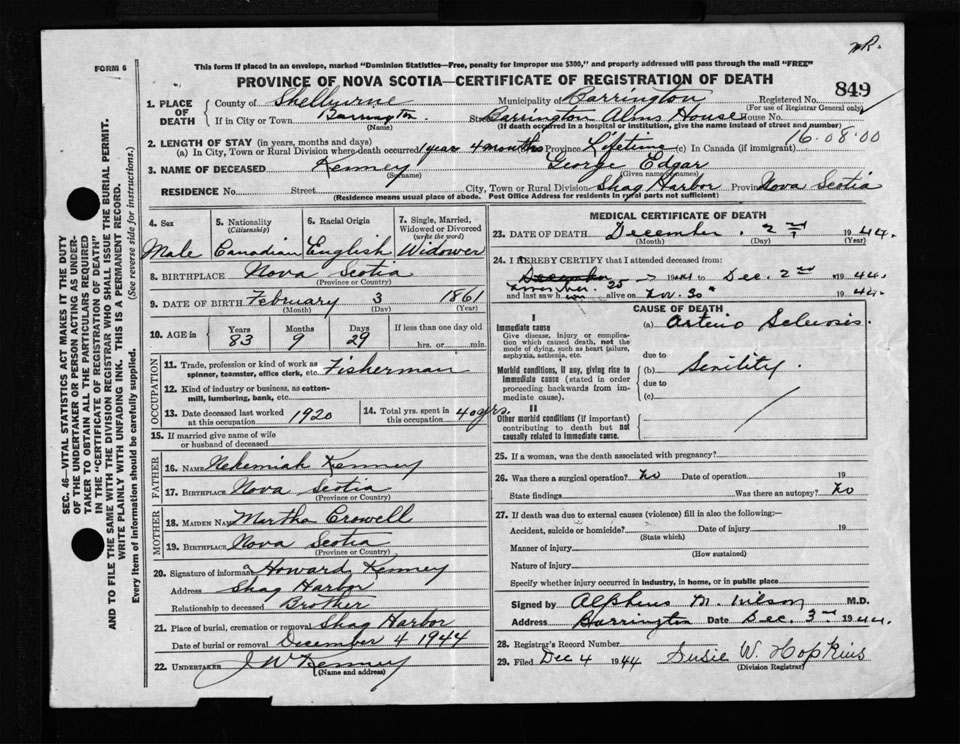 nR.
FORM 6
This form if placed in an envelope, marked "Dominion Statistics—Free, penalty for improper use $300," and properly addressed will pass through the mail "FREE"
PROVINCE OF NOVA SCOTIA—CERTIFICATE OF REGISTRATION OF DEATH
849
1. PLACE OF DEATH
County of Shelburne Municipality of Barrington Registered No.
(For use of Registrar General only)
If in City or Town Barrington Street Barrington Alms House House No.
(Name) (If death occurred in a hospital or institution, give the name instead of street and number)
16.08.00
2. LENGTH OF STAY (in years, months and days)
(a) In City, Town or Rural Division where death occurred 1 year 4 months Province Lifetime (c) In Canada (if immigrant)
3. NAME OF DECEASED Kenney George Edgar
(Surname) (Given name or names)
RESIDENCE No. Street City, Town or Rural Division Shag Harbor Province Nova Scotia
(Residence means usual place of abode. Post Office Address for residents in rural parts not sufficient)
4. Sex Male
5. Nationality (Citizenship) Canadian
6. Racial Origin English
7. Single, Married, Widowed or Divorced (write the word) Widower
8. BIRTHPLACE Nova Scotia
(Province or Country)
9. DATE OF BIRTH February 3 1861
(Month) (Day) (Year)
10. AGE in Years 83 Months 9 Days 29 If less than one day old
hrs. or min.
OCCUPATION
11. Trade, profession or kind of work as spinner, teamster, office clerk, etc. Fisherman
12. Kind of industry or business, as cotton-mill, lumbering, bank, etc.
13. Date deceased last worked at this occupation 1920
14. Total yrs. spent in this occupation 40 yrs.
15. If married give name of wife or husband of deceased
FATHER
16. NAME Nehemiah Kenney
17. BIRTHPLACE Nova Scotia
(Province or Country)
MOTHER
18. MAIDEN NAME Martha Crowell
19. BIRTHPLACE Nova Scotia
(Province or Country)
20. Signature of informant Howard Kenney
Address Shag Harbor
Relationship to deceased Brother
21. Place of burial, cremation or removal Shag Harbor
Date of burial or removal December 4 1944
22. UNDERTAKER J W Kenney
(Name and address)
MEDICAL CERTIFICATE OF DEATH
23. DATE OF DEATH December 2nd 1944.
(Month) (Day) (Year)
24. I HEREBY CERTIFY that I attended deceased from:
December
November 25 1944 to Dec. 2nd 1944
and last saw him alive on Nov. 30 1944
CAUSE OF DEATH
I
Immediate cause
Give disease, injury or complication which caused death, not the mode of dying, such as heart failure, asphyxia, asthenia, etc.
(a) Arterio Sclerosis.
due to
Morbid conditions, if any, giving rise to immediate cause (stated in order proceeding backwards from immediate cause).
(b) Senility.
due to
(c)
II
Other morbid conditions (if important) contributing to death but not causally related to immediate cause.
25. If a woman, was the death associated with pregnancy?
26. Was there a surgical operation? No Date of operation 19
State findings Was there an autopsy? No
27. If death was due to external causes (violence) fill in also the following:—
Accident, suicide or homicide? Date of injury 19
(State which)
Manner of injury
(How sustained)
Nature of injury
Specify whether injury occurred in industry, in home, or in public place
Signed by Alpheus M. Wilson M.D.
Address Barrington Date Dec. 3rd 1944.
28. Registrar's Record Number
29. Filed Dec 4 1944 Susie W. Hopkins
(Division Registrar)
SEC. 46—VITAL STATISTICS ACT MAKES IT THE DUTY
OF THE UNDERTAKER OR PERSON ACTING AS UNDER-
TAKER TO OBTAIN ALL THE PARTICULARS REQUIRED
IN THE "CERTIFICATE OF REGISTRATION OF DEATH"
AND TO FILE THE SAME WITH THE DIVISION REGISTRAR WHO SHALL ISSUE THE BURIAL PERMIT.
WRITE PLAINLY WITH UNFADING INK. THIS IS A PERMANENT RECORD.
Every item of information should be carefully supplied. (See reverse side for instructions.)